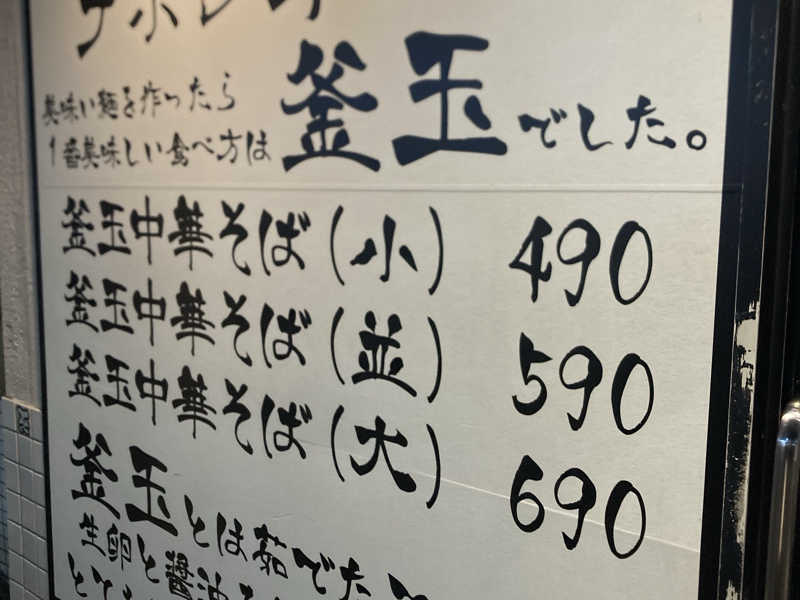 美味い麺を作ったら
1番美味しい食べ方は
釜玉でした。
釜玉中華そば(小) 490
釜玉中華そば(並) 590
釜玉中華そば(大) 690
釜玉とは茹でた
生卵と醤油